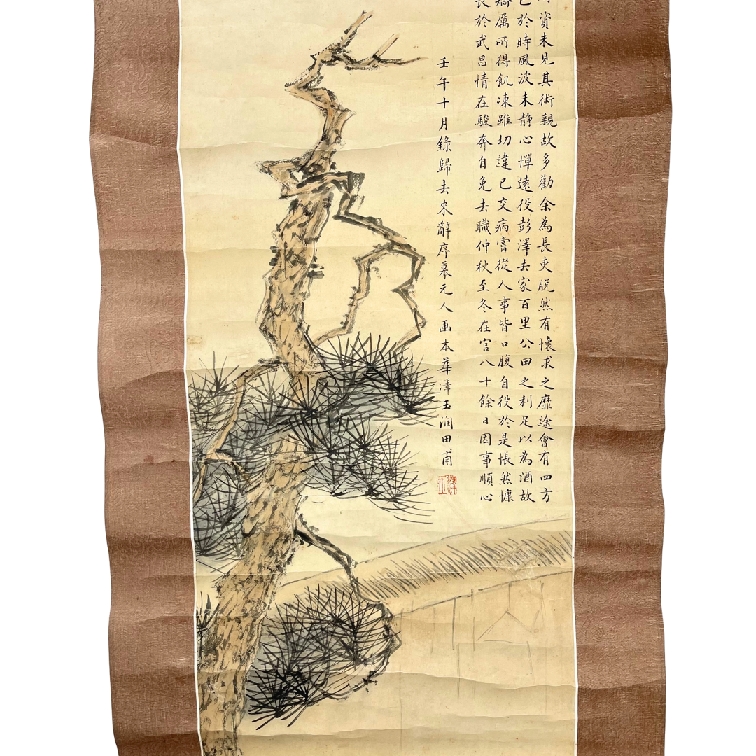 資未見其術親故多勸余為長吏脫然有懷求之靡途會有四方
於時風波未靜心憚遠役彭澤去家百里公田之利足以為酒故
厲所得飢凍雖切違已交病嘗從人事皆口腹自役於是悵然慷
長於武昌情在駿奔自免去職仲秋至冬在官八十餘日因事順心
壬午十月錄歸去来辭序摹元人画本華津玉润田